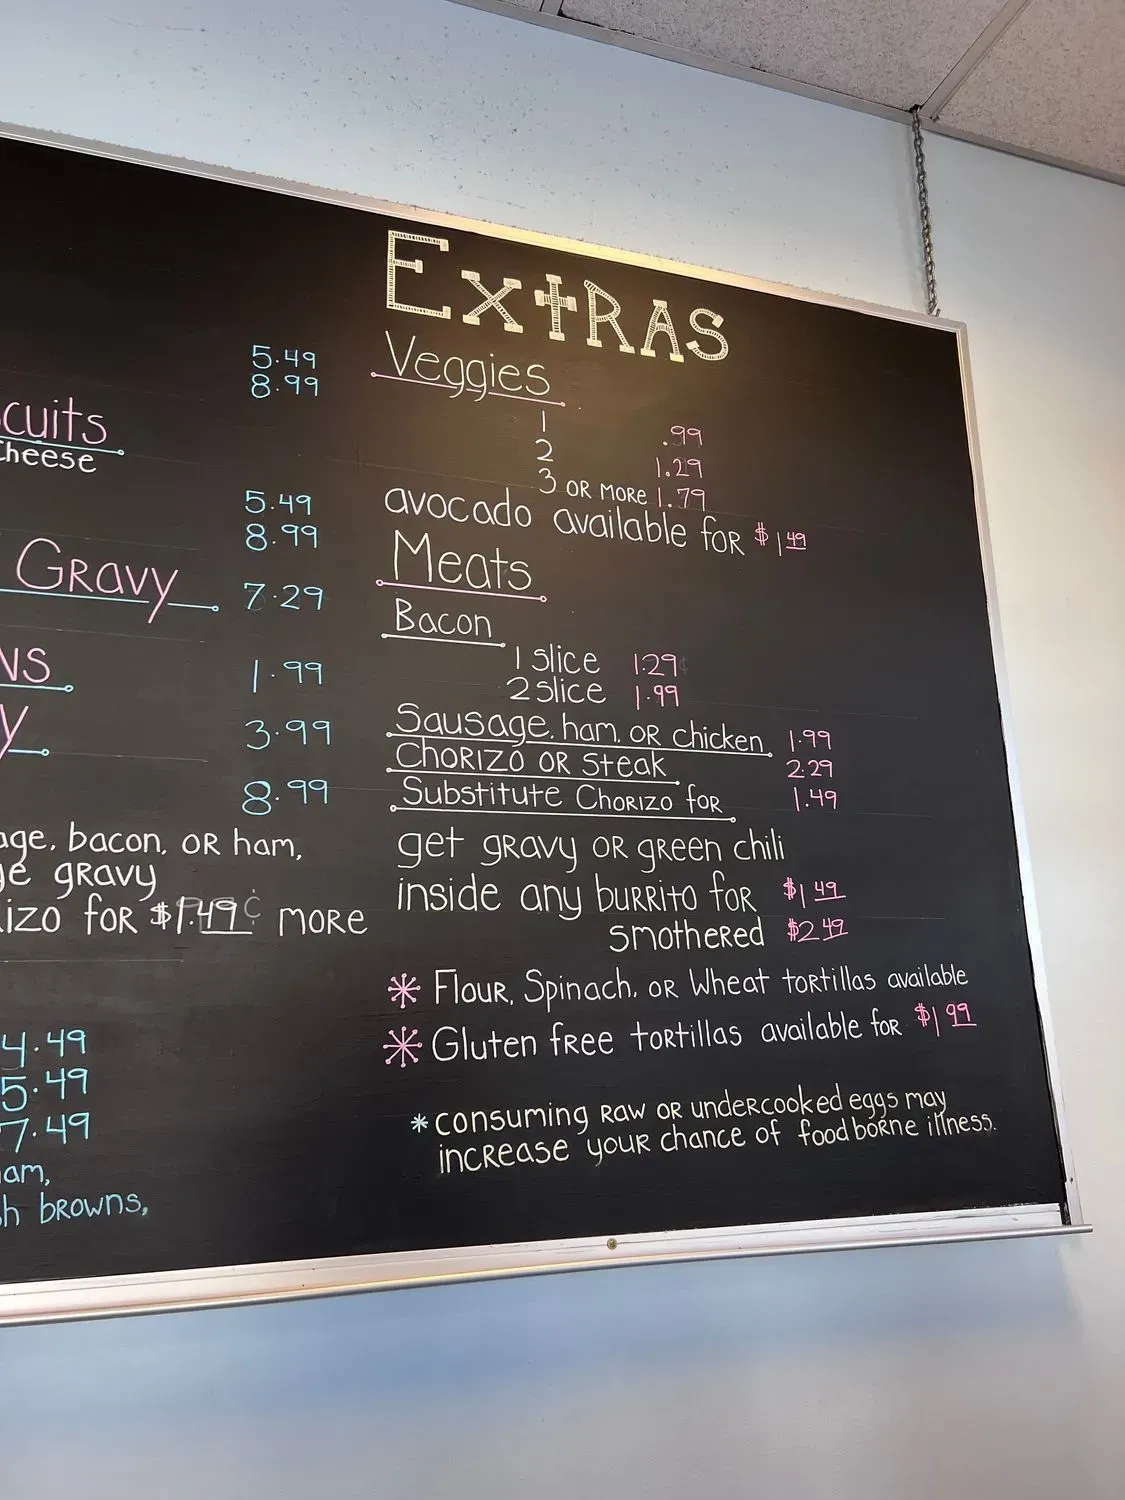 5.49
8.99
cuits
cheese
5.49
8.99
Gravy
7.29
NS
1.99
y
3.99
8.99
age, bacon, OR ham,
ge gravy
izo for $1.49¢ more
4.49
5.49
7.49
am,
h browns,
Extras
Veggies
1 .99
2 1.29
3 or more 1.79
avocado available for $1 49
Meats
Bacon
1 slice 1.29¢
2 slice 1.99
Sausage, ham, or chicken 1.99
Chorizo or steak 2.29
Substitute Chorizo for 1.49
get gravy or green chili
inside any burrito for $1 49
smothered $2 49
* Flour, Spinach, or Wheat tortillas available
* Gluten free tortillas available for $1 99
* consuming raw or undercooked eggs may
increase your chance of foodborne illness.